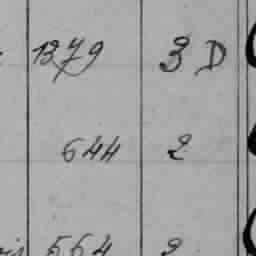 1379 3 D
644 2
564 2